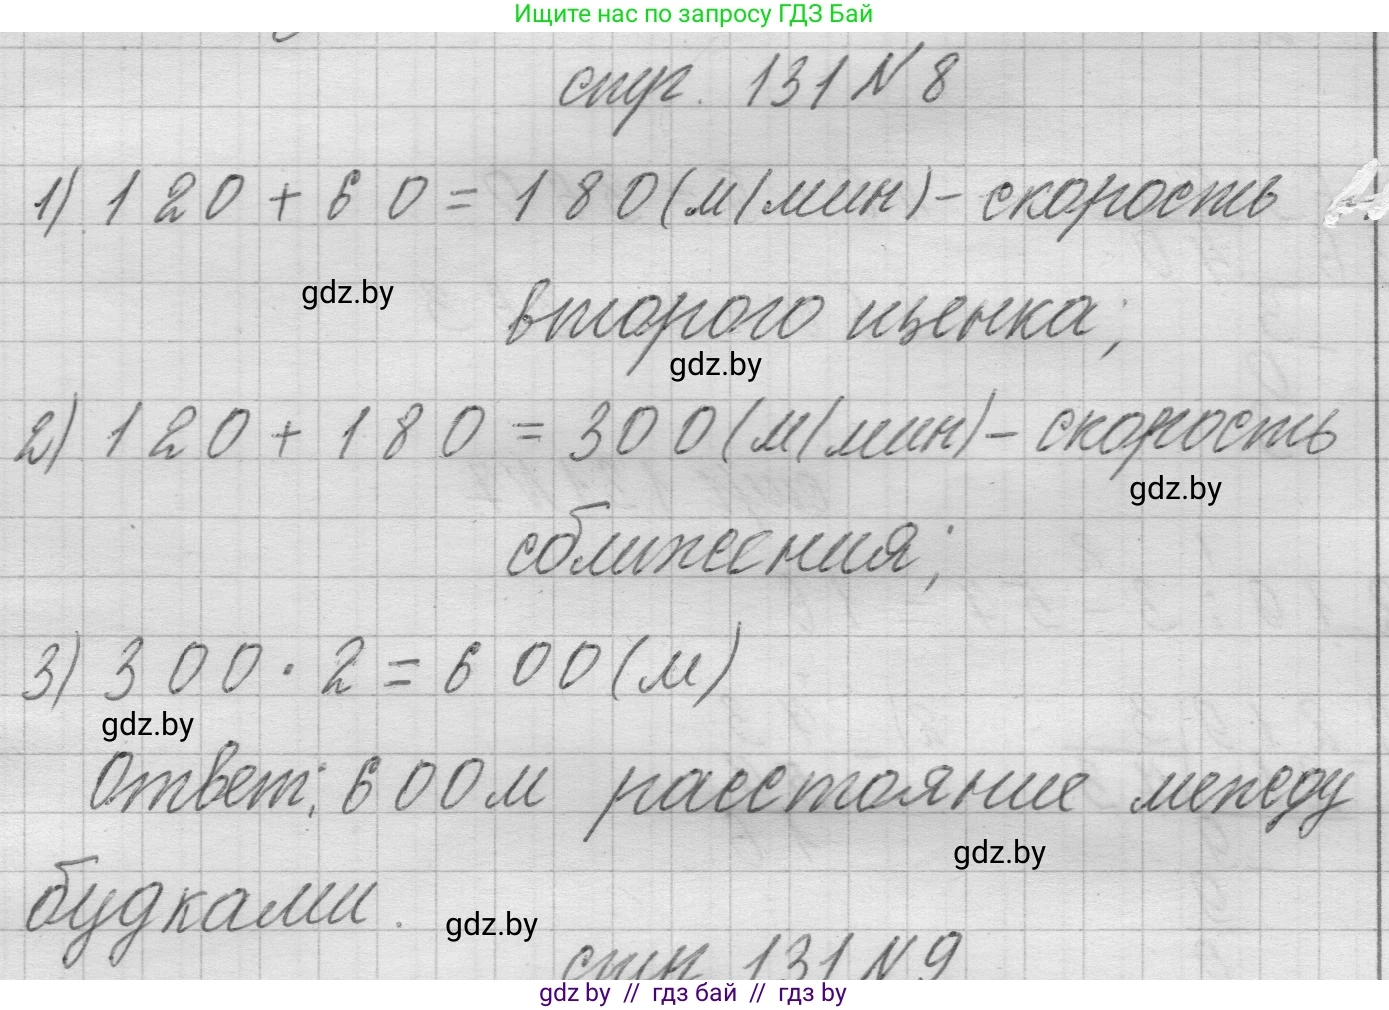 Ищите нас по запросу ГДЗ Бай
стр. 131 № 8
1) 120 + 60 = 180 (м/мин) - скорость
gdz.by
второго щенка;
gdz.by
2) 120 + 180 = 300 (м/мин) - скорость
gdz.by
сближения;
3) 300 · 2 = 600 (м)
gdz.by
Ответ: 600 м расстояние между
gdz.by
будками.
gdz.by
стр. 131 № 9
gdz by // гдз бай // гдз by